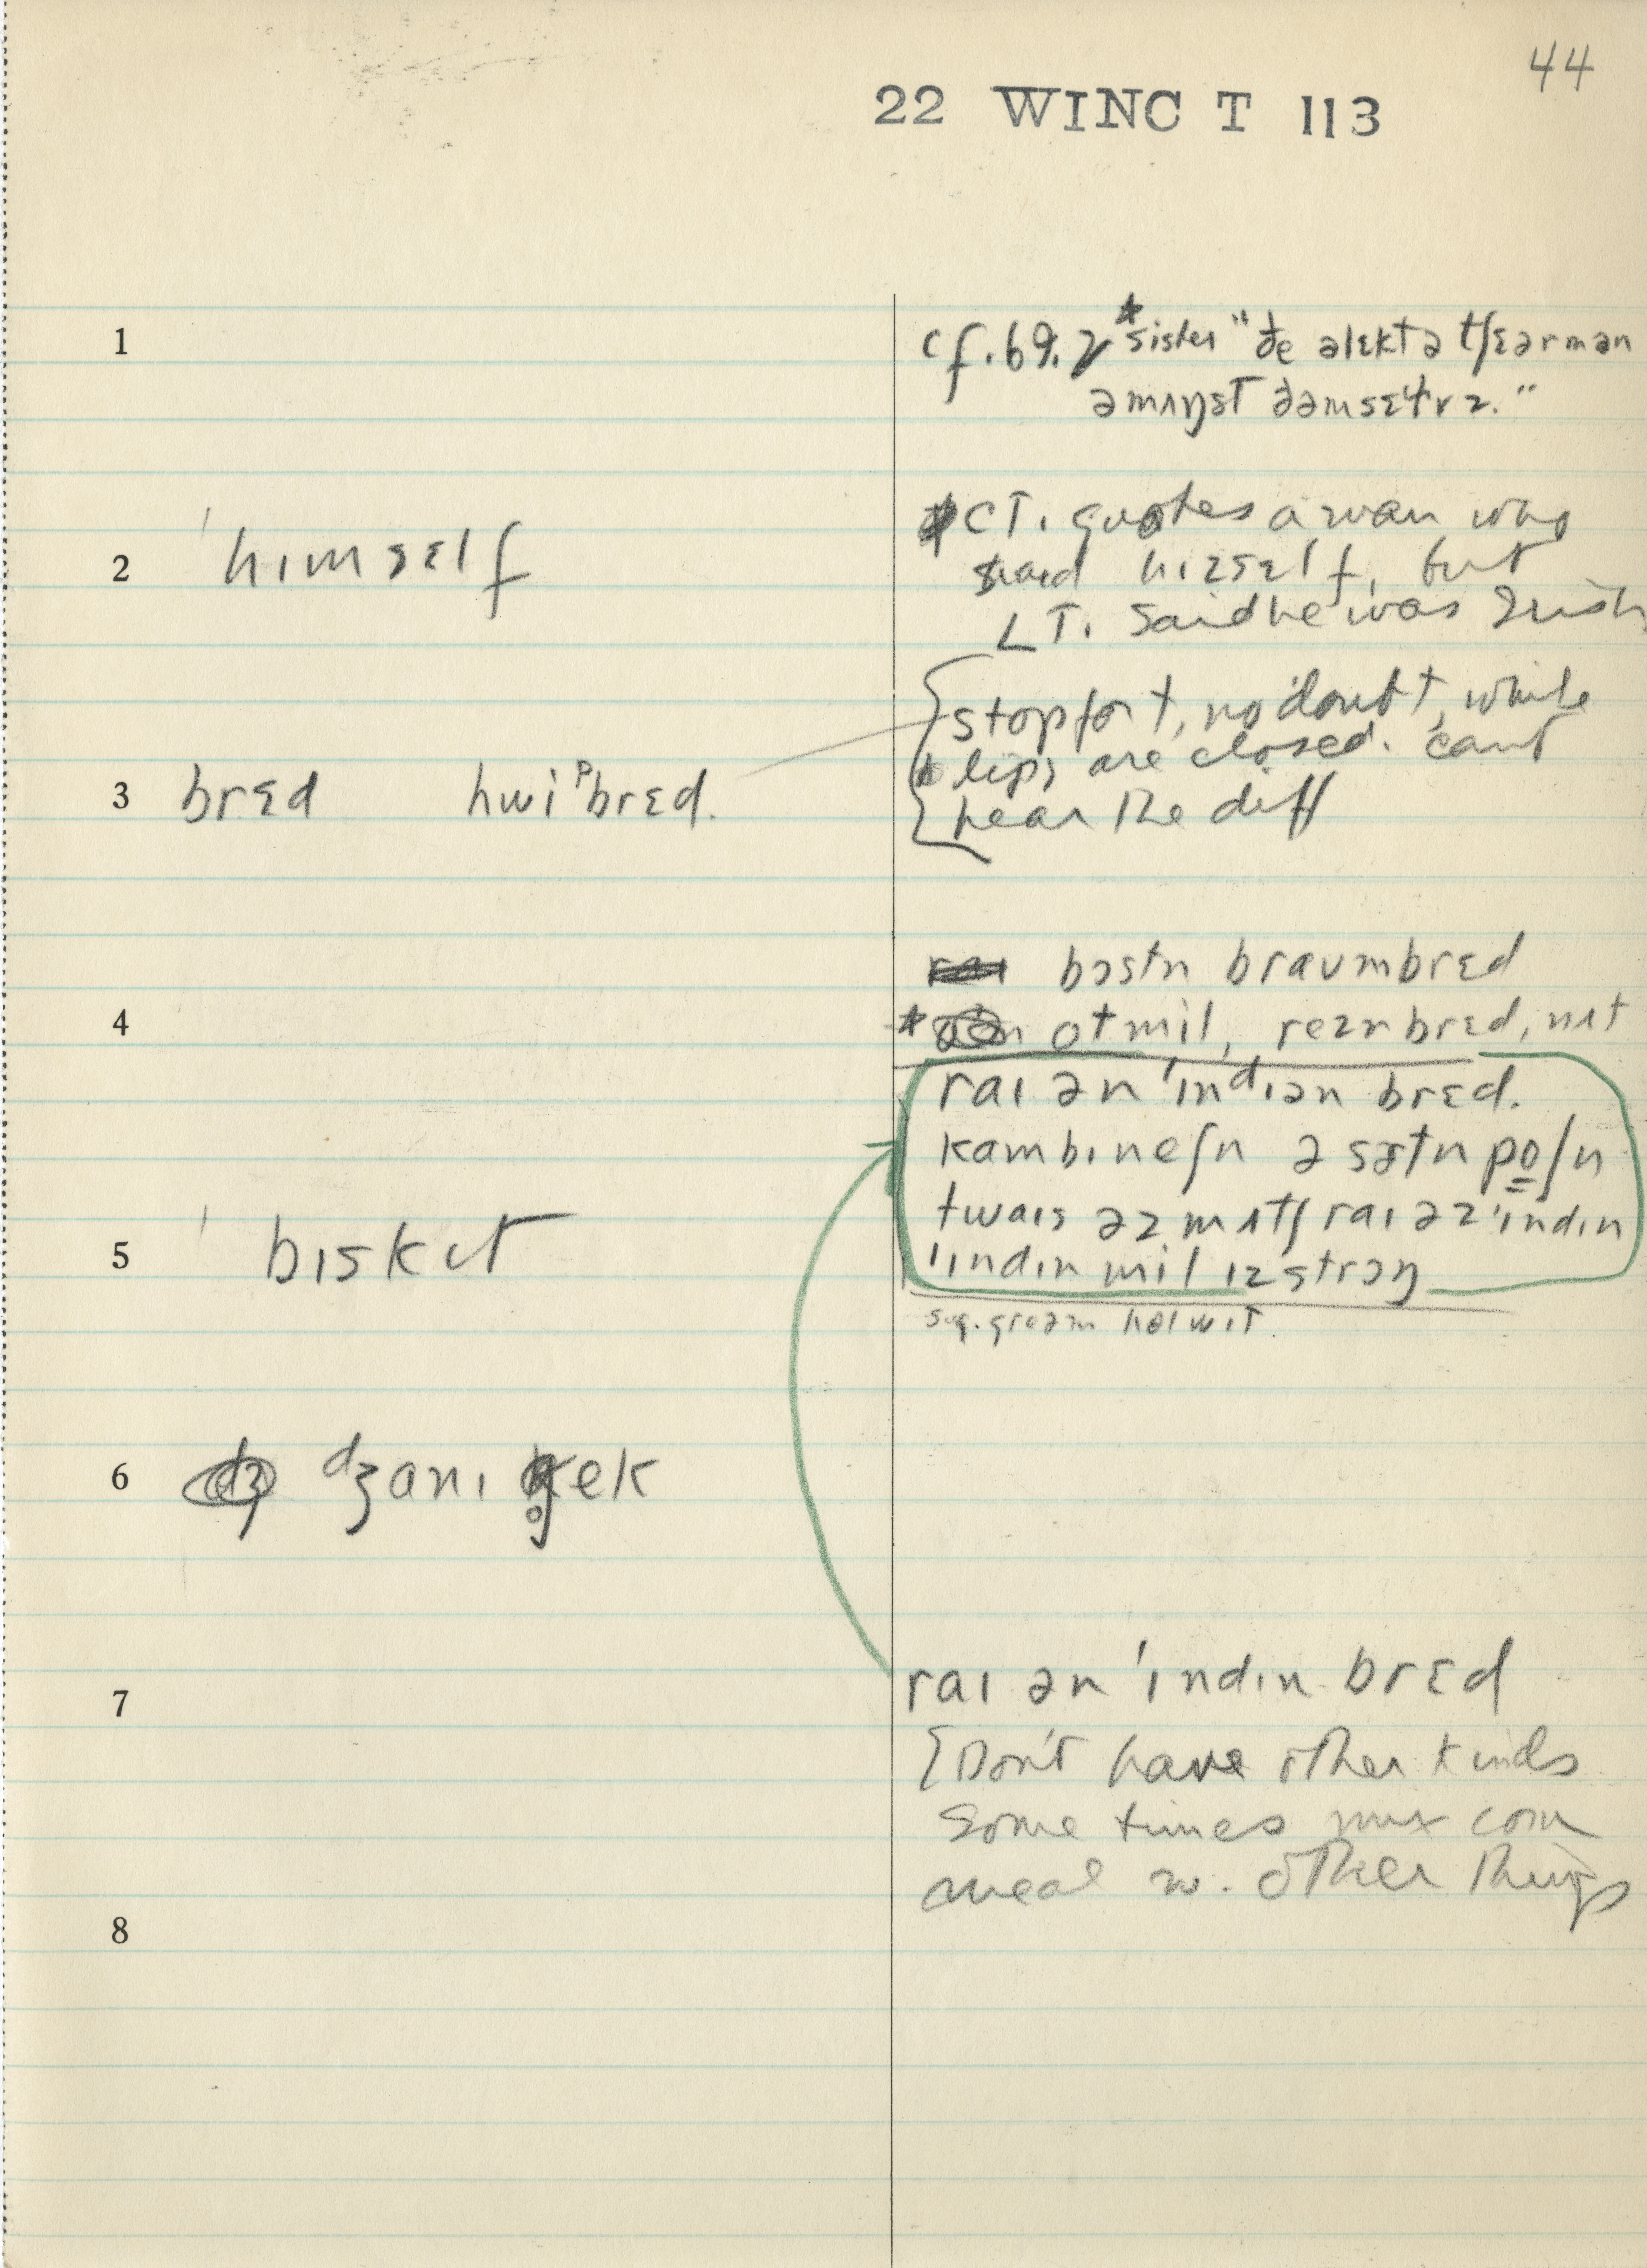 44
22 WINC T 113
1 cf. 69.2 *sister "ðe əlɛktə tʃɛərmən
əmʌŋst ðəmsɛlvz."
2 ˈhɪmsɛlf CT. quotes a man who
said hɪzsɛlf, but
LT. said he was Irish
stop for t, no doubt, while
3 brɛd hwiᵖbrɛd. lips are closed. can't
hear the diff
bɔstn braʊmbrɛd
4 * otmil, rezn brɛd, nʌt
raɪ ən ˈɪndɪən brɛd.
kambɪneʃn ə sɝtn poʃn
twaɪs əz mʌtʃ raɪ əz ˈɪndɪn
5 ˈbɪskɪt ˈɪndɪn mil ɪz strɔŋ
sug. greəm hol wit
6 dʒanɪ g̥ek
7 raɪ ən ˈɪndɪn brɛd
{Don't have other kinds
Some times mix corn
meal w. other things
8